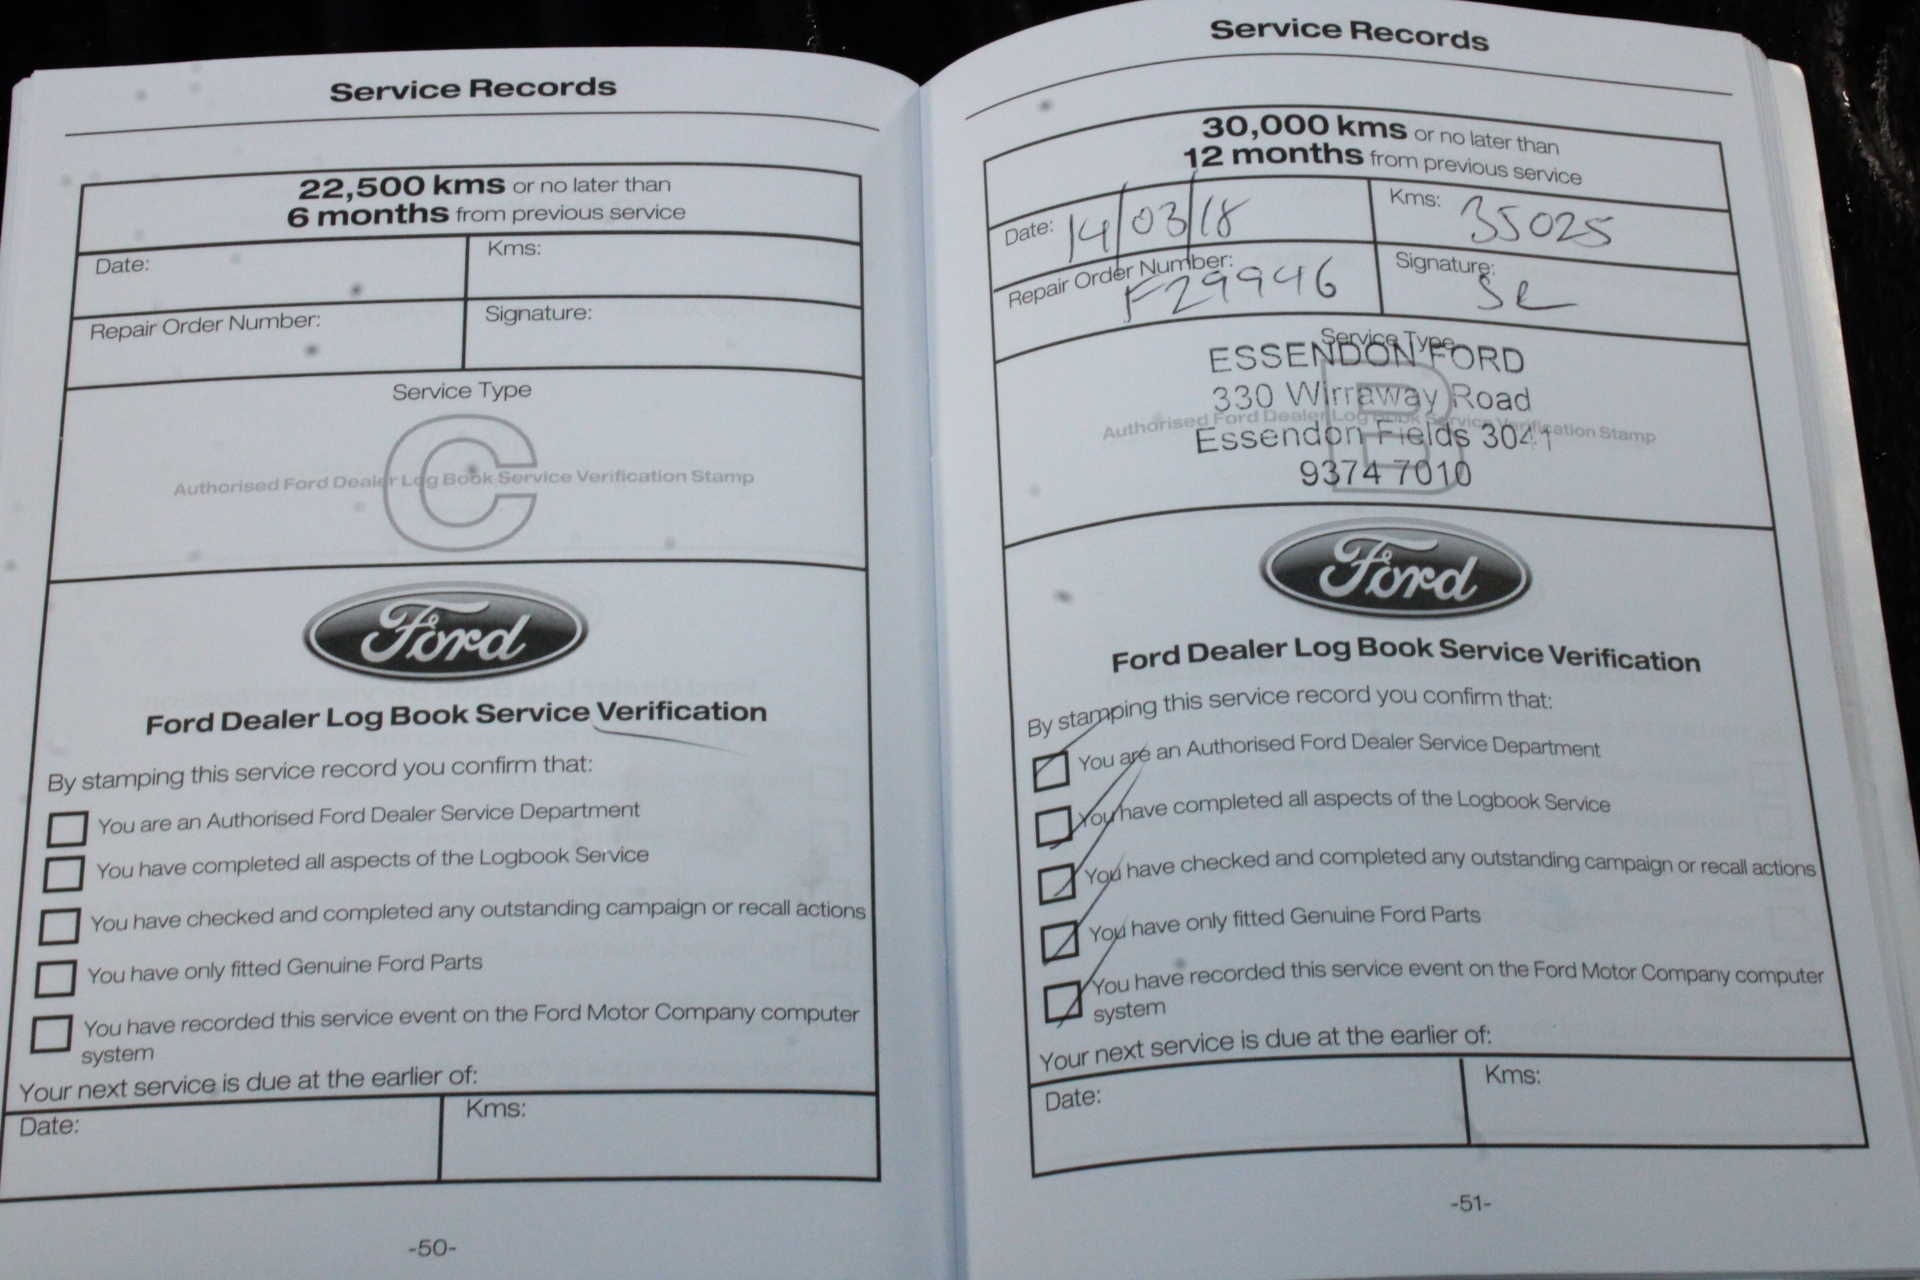 Service Records
22,500 kms or no later than
6 months from previous service
Date:
Kms:
Repair Order Number:
Signature:
Service Type
C
Authorised Ford Dealer Log Book Service Verification Stamp
Ford
Ford Dealer Log Book Service Verification
By stamping this service record you confirm that:
You are an Authorised Ford Dealer Service Department
You have completed all aspects of the Logbook Service
You have checked and completed any outstanding campaign or recall actions
You have only fitted Genuine Ford Parts
You have recorded this service event on the Ford Motor Company computer
system
Your next service is due at the earlier of:
Date:
Kms:
-50-
Service Records
30,000 kms or no later than
12 months from previous service
Date: 14/03/18
Kms: 35025
Repair Order Number:
F29946
Signature:
Service Type
B
ESSENDON FORD
330 Wirraway Road
Authorised Ford Dealer Log Book Service Verification Stamp
Essendon Fields 3041
9374 7010
Ford
Ford Dealer Log Book Service Verification
By stamping this service record you confirm that:
You are an Authorised Ford Dealer Service Department
You have completed all aspects of the Logbook Service
You have checked and completed any outstanding campaign or recall actions
You have only fitted Genuine Ford Parts
You have recorded this service event on the Ford Motor Company computer
system
Your next service is due at the earlier of:
Date:
Kms:
-51-